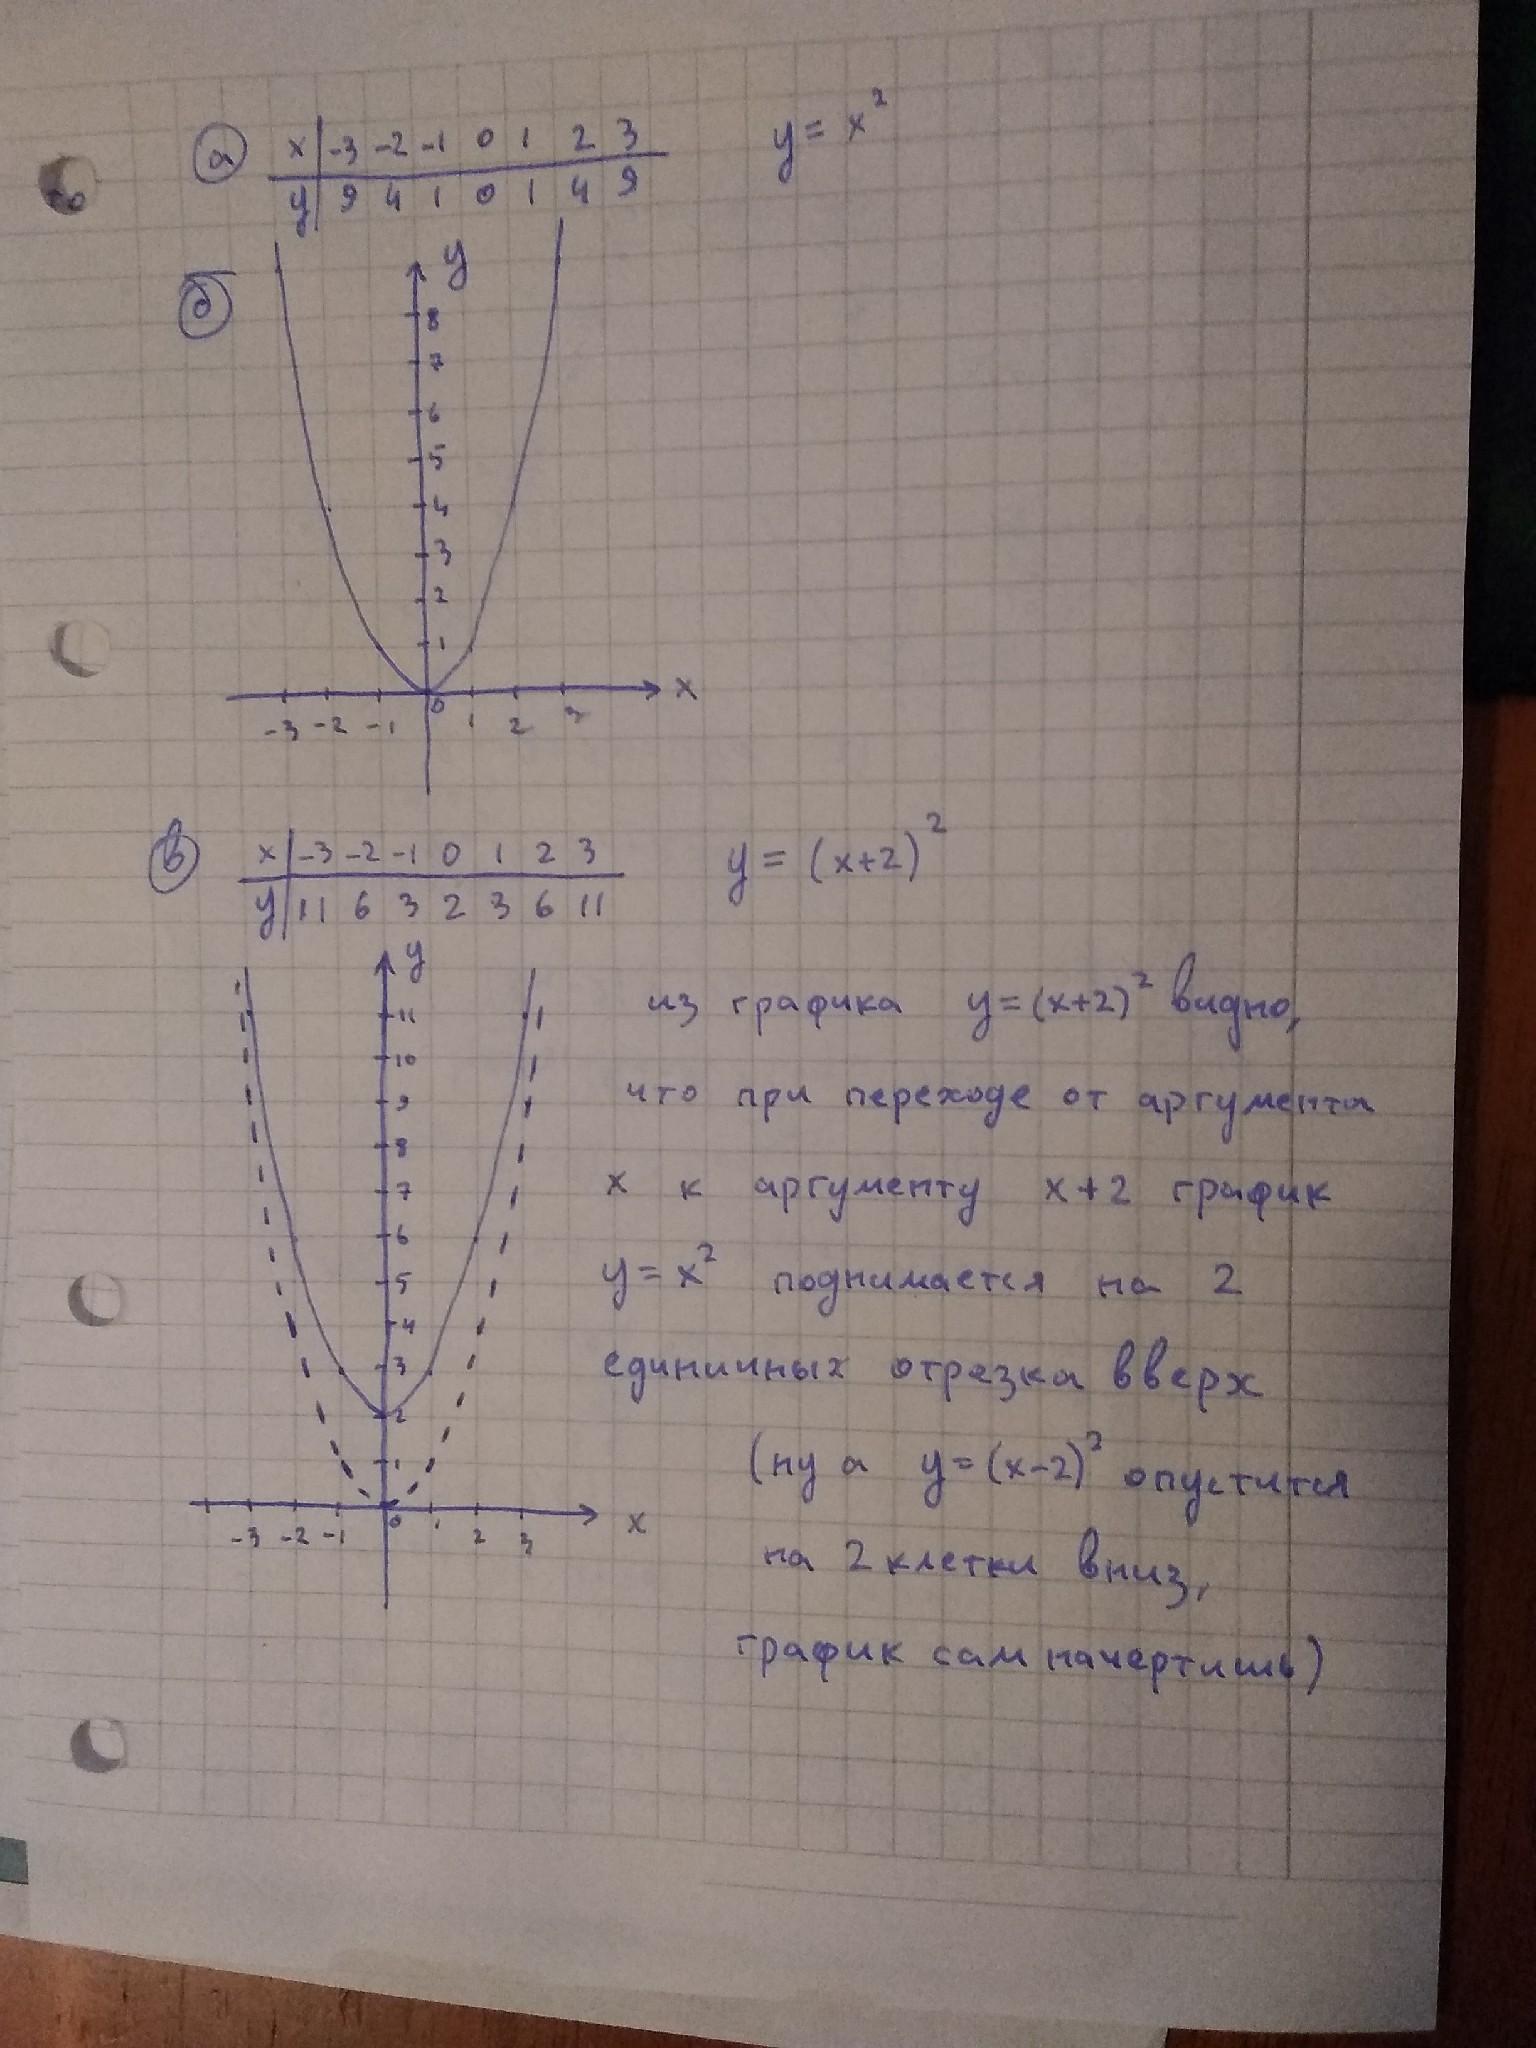 а x | -3 -2 -1 0 1 2 3 y = x²
y | 9 4 1 0 1 4 9
б y
8
7
6
5
4
3
2
1
-3 -2 -1 0 1 2 3 x
в x | -3 -2 -1 0 1 2 3 y = (x+2)²
y | 11 6 3 2 3 6 11
y
11
10
9
8
7
6
5
4
3
2
1
-3 -2 -1 0 1 2 3 x
из графика y=(x+2)² видно,
что при переходе от аргумента
x к аргументу x+2 график
y=x² поднимается на 2
единичных отрезка вверх
(ну а y=(x-2)² опустится
на 2 клетки вниз,
график сам начертишь)